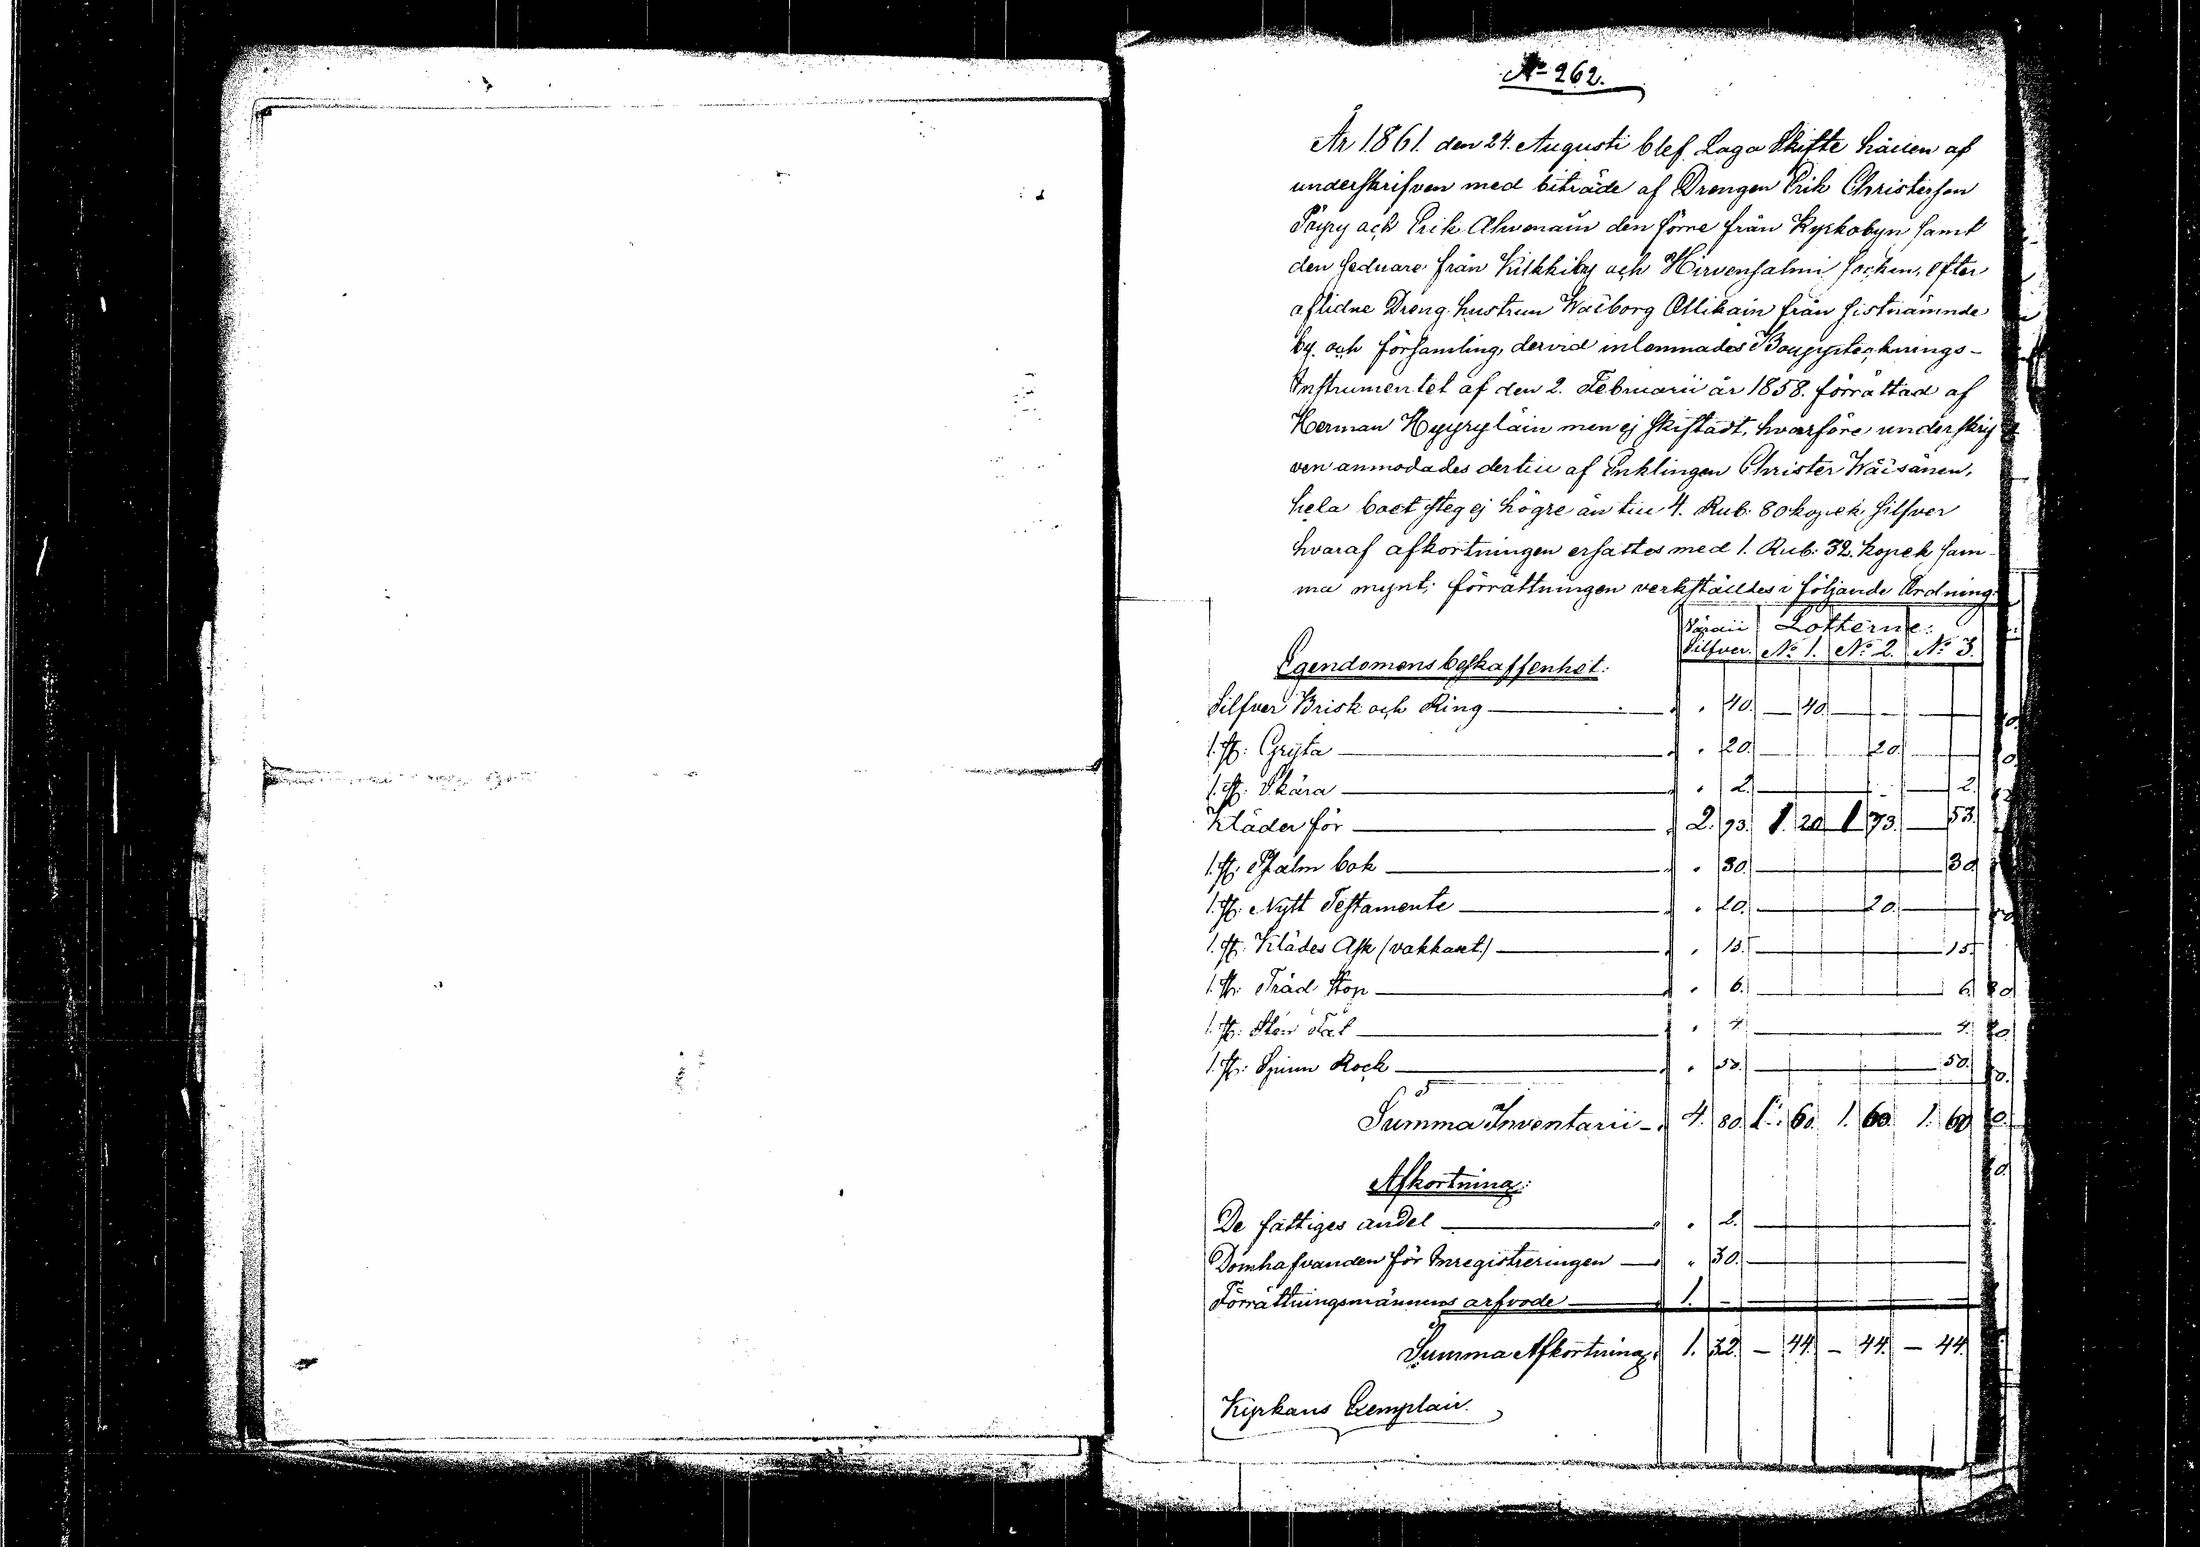 No 262.
År 1861. den 24. Augusti blef Laga Skifte hållen af
underskrifven med biträde af Drengen Erik Christersson
Päyry och Erik Ahvenain den förre från Kyrkobyn samt
den sednare från Kilkkiby och Hirvensalmi sochen, efter
aflidne Dreng hustrun Walborg Ollikain från sistnämnde
by och församling, dervid inlemnades Bouppteknings-
Instrumentet af den 2. Februarii år 1858. förrättad af
Herman Hyyryläin men ej skiftadt, hvarföre underskrif
ven anmodades dertill af Enklingen Christer Wäisänen,
hela boet steg ej högre än till 4. Rub. 80 kopek silfver
hvaraf afkortningen ersattes med 1. Rub: 32. kopek sam-
ma mynt; förrättningen verkställdes i följande Ordning:
Silfver. Lotterne:
Egendomens beskaffenhet: No 1. No 2. No 3.
Silfver Brisk och Ring " 40. — 40. — — —
1. st. Gryta " 20. — 20. —
1. st. Skära " 2. — — 2.
Kläder för 2. 93. 1. 20 1 73. — 53.
1. st. Psalm bok " 30. — 30.
1. st. Nytt Testamente " 20. — 20. —
1. st. Klädes Ask (vakkant) " 15. — 15.
1. st. Träd Stop " 6. — 6.
1. st. Sten Fat " 4. — 4.
1. st. Spinn Rock " 50. — 50.
Summa Inventarii 4. 80. 1. 60. 1. 60. 1. 60
Afkortning:
De fattiges andel " 2. —
Domhafvanden för Inregistreringen " 30. —
Förrättningsmännens arfvode 1. — —
Summa Afkortning. 1. 32. — 44. — 44. — 44.
Kyrkans Exemplair.